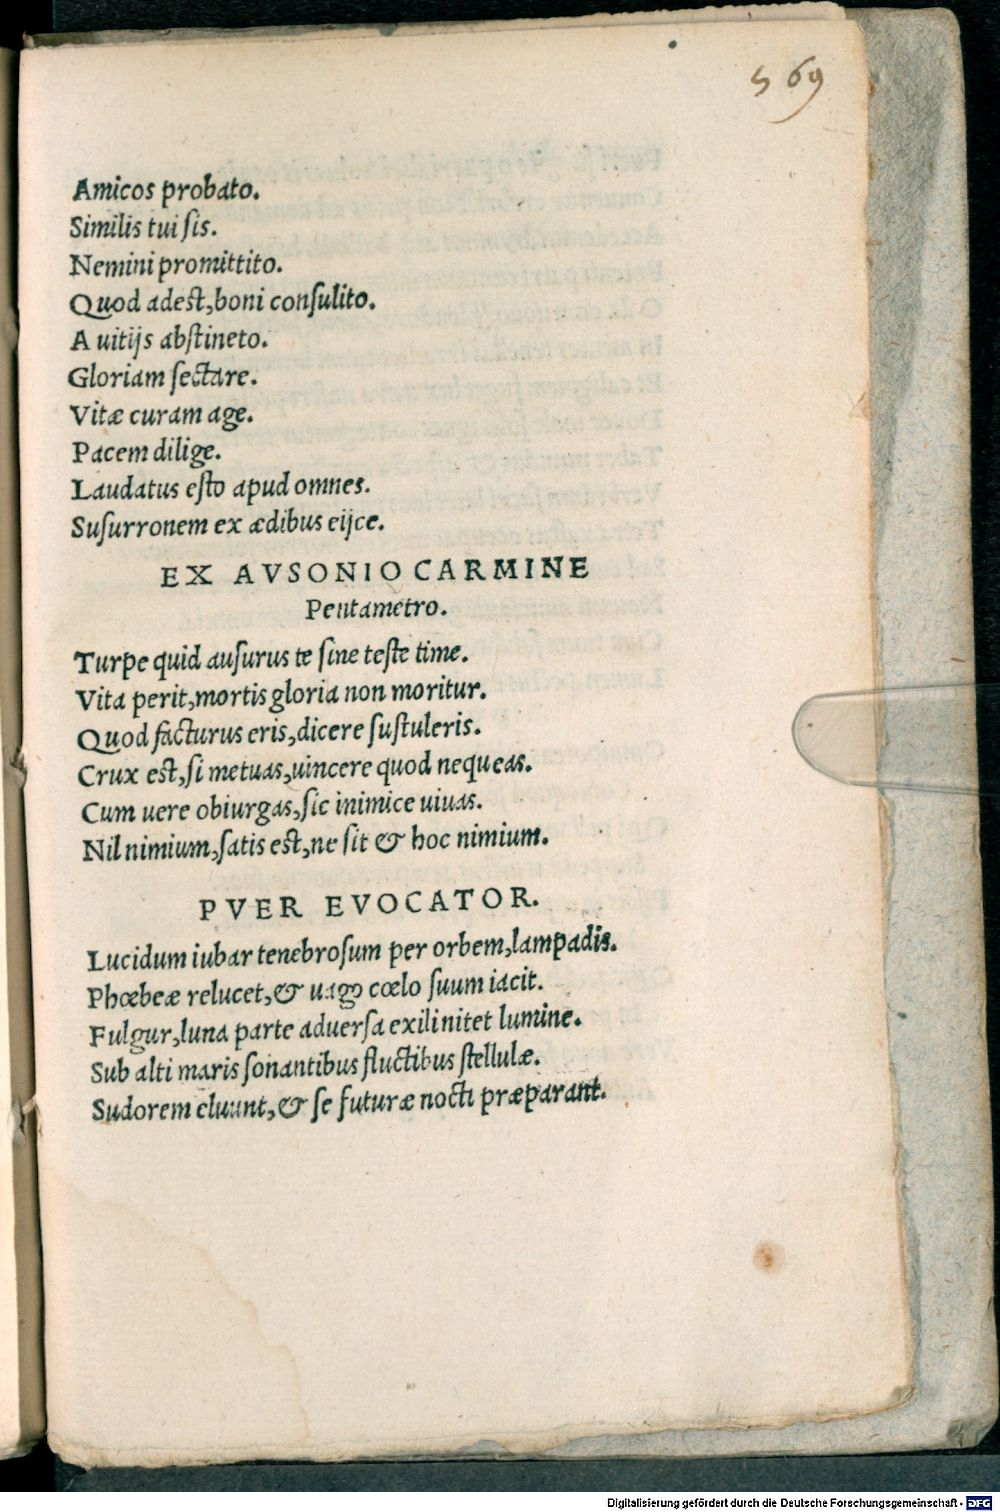 569
Amicos probato.
Similis tui ſis.
Nemini promittito.
Quod adest, boni conſulito.
A uitijs abſtineto.
Gloriam ſectare.
Vitæ curam age.
Pacem dilige.
Laudatus eſto apud omnes.
Suſurronem ex ædibus eijce.
EX AVSONIO CARMINE
Pentametro.
Turpe quid auſurus te ſine teſte time.
Vita perit, mortis gloria non moritur.
Quod facturus eris, dicere ſuſtuleris.
Crux est, ſi metuas, uincere quod nequeas.
Cum uere obiurgas, ſic inimice uiuas.
Nil nimium, ſatis est, ne ſit & hoc nimium.
PVER EVOCATOR.
Lucidum iubar tenebroſum per orbem, lampadis.
Phœbeæ relucet, & uago cœlo ſuum iacit.
Fulgur, luna parte aduerſa exili nitet lumine.
Sub alti maris ſonantibus fluctibus ſtellulæ.
Sudorem eluunt, & ſe futuræ nocti præparant.
Digitalisierung gefördert durch die Deutsche Forschungsgemeinschaft - DFG